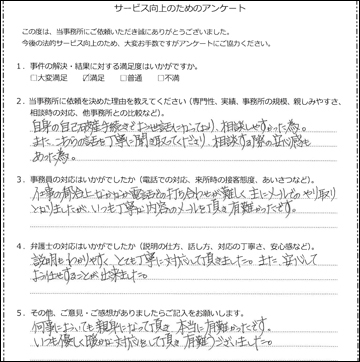 サービス向上のためのアンケート
この度は、当事務所にご依頼いただき誠にありがとうございました。
今後の法的サービス向上のため、大変お手数ですがアンケートにご協力ください。
1．事件の解決・結果に対する満足度はいかがですか。
□大変満足 ☑満足 □普通 □不満
2．当事務所に依頼を決めた理由を教えてください（専門性、実績、事務所の規模、親しみやすさ、
相談時の対応、他事務所との比較など）。
自身の自己破産手続きでお世話になっており、相談しやすかった為。
また、こちらの話を丁寧に聞き取ってくださり、相談する際の安心感も
あった為。
3．事務員の対応はいかがでしたか（電話での対応、来所時の接客態度、あいさつなど）。
仕事の都合上なかなか電話での打ち合わせが難しく、主にメールでのやり取り
となりましたが、いつも丁寧な内容のメールを頂き有難かったです。
4．弁護士の対応はいかがでしたか（説明の仕方、話し方、対応の丁寧さ、安心感など）。
説明もわかりやすく、とても丁寧に対応して頂きました。また、安心して
お任せすることが出来ました。
5．その他、ご意見・ご感想がありましたらご記入をお願いします。
何事においても親身になって頂き、本当に有難かったです。
いつも優しく暖かな対応をして頂き有難うございました。